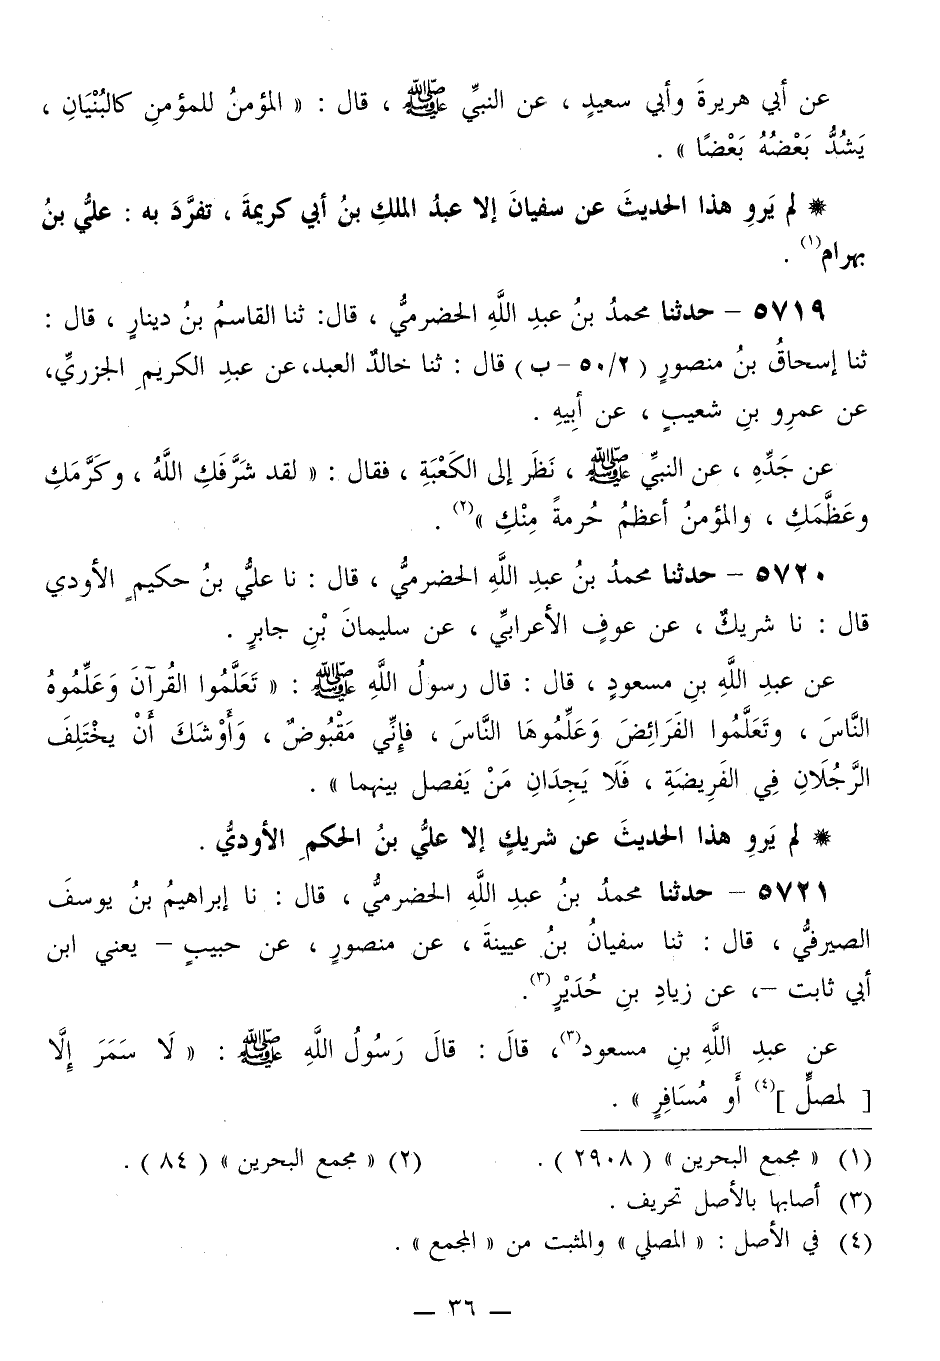 عن أبي هريرةَ وأبي سعيدٍ ، عن النبيِّ ﷺ ، قال : « المؤمنُ للمؤمنِ كالبُنْيَانِ ،
يَشُدُّ بَعْضُهُ بَعْضًا » .
* لم يَروِ هذا الحديثَ عن سفيانَ إلا عبدُ الملكِ بنُ أبي كريمةَ ، تفرَّدَ به : عليُّ بنُ
بهرام(١) .
٥٧١٩ – حدثنا محمدُ بنُ عبدِ اللَّهِ الحضرميُّ ، قال: ثنا القاسمُ بنُ دينارٍ ، قال :
ثنا إسحاقُ بنُ منصورٍ ( ٥٠/٢ – ب ) قال : ثنا خالدٌ العبد، عن عبدِ الكريمِ الجزريِّ،
عن عمرِو بنِ شعيبٍ ، عن أَبِيهِ .
عن جَدِّهِ ، عن النبيِّ ﷺ ، نَظَر إلى الكَعْبَةِ ، فقال : « لقد شَرَّفَكِ اللَّهُ ، وكَرَّمَكِ
وعَظَّمَكِ ، والمؤمنُ أعظمُ حُرمةً مِنْكِ »(٢) .
٥٧٢٠ – حدثنا محمدُ بنُ عبدِ اللَّهِ الحضرميُّ ، قال : نا عليُّ بنُ حكيمٍ الأودي
قال : نا شريكٌ ، عن عوفٍ الأعرابيِّ ، عن سليمانَ بْنِ جابرٍ .
عن عبدِ اللَّهِ بنِ مسعودٍ ، قال : قال رسولُ اللَّهِ ﷺ : « تَعَلَّمُوا القُرآنَ وَعَلِّمُوهُ
النَّاسَ ، وتَعَلَّمُوا الفَرَائِضَ وَعَلِّمُوهَا النَّاسَ ، فإِنِّي مَقْبُوضٌ ، وَأَوْشَكَ أَنْ يخْتَلِفَ
الرَّجُلَانِ فِي الفَرِيضَةِ ، فَلَا يَجِدَانِ مَنْ يَفصل بينهما » .
* لم يَروِ هذا الحديثَ عن شريكٍ إلا عليُّ بنُ الحكمِ الأوديُّ .
٥٧٢١ – حدثنا محمدُ بنُ عبدِ اللَّهِ الحضرميُّ ، قال : نا إبراهيمُ بنُ يوسفَ
الصيرفيُّ ، قال : ثنا سفيانُ بنُ عيينةَ ، عن منصورٍ ، عن حبيبٍ – يعني ابن
أبي ثابت –، عن زيادِ بنِ حُدَيْرٍ(٣).
عن عبدِ اللَّهِ بنِ مسعود(٣)، قالَ : قالَ رَسُولُ اللَّهِ ﷺ : « لَا سَمَرَ إِلَّا
[ لمصلٍّ ](٤) أَو مُسَافِرٍ » .
(١) « مجمع البحرين » ( ٢٩٠٨ ) . (٢) « مجمع البحرين » ( ٨٤ ) .
(٣) أصابها بالأصل تحريف .
(٤) في الأصل : « المصلي » والمثبت من « المجمع » .
— ٣٦ —